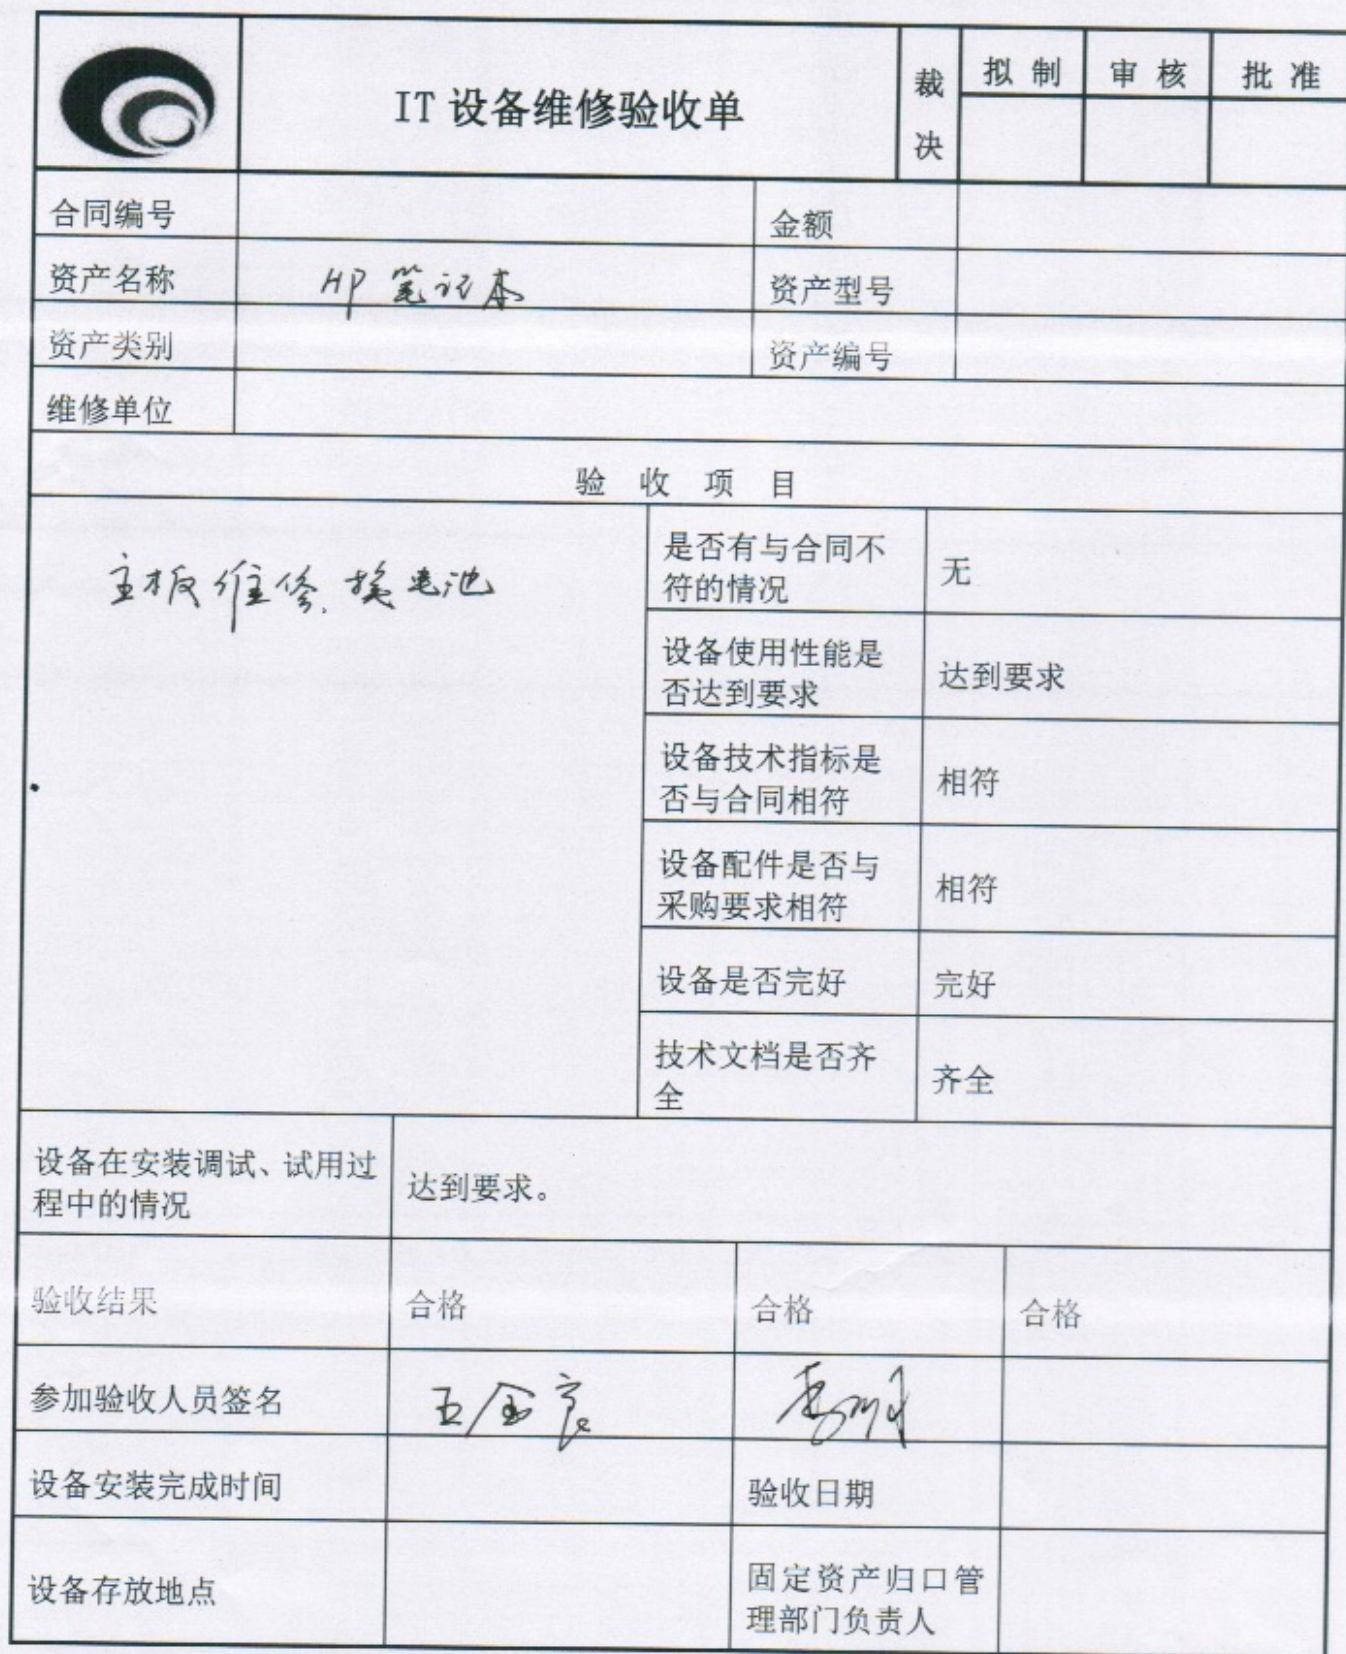 IT 设备维修验收单
裁决
拟 制
审 核
批 准
合同编号
金额
资产名称
HP 笔记本
资产型号
资产类别
资产编号
维修单位
验 收 项 目
主板维修, 换电池
是否有与合同不
符的情况
无
设备使用性能是
否达到要求
达到要求
设备技术指标是
否与合同相符
相符
设备配件是否与
采购要求相符
相符
设备是否完好
完好
技术文档是否齐
全
齐全
设备在安装调试、试用过
程中的情况
达到要求。
验收结果
合格
合格
合格
参加验收人员签名
设备安装完成时间
验收日期
设备存放地点
固定资产归口管
理部门负责人